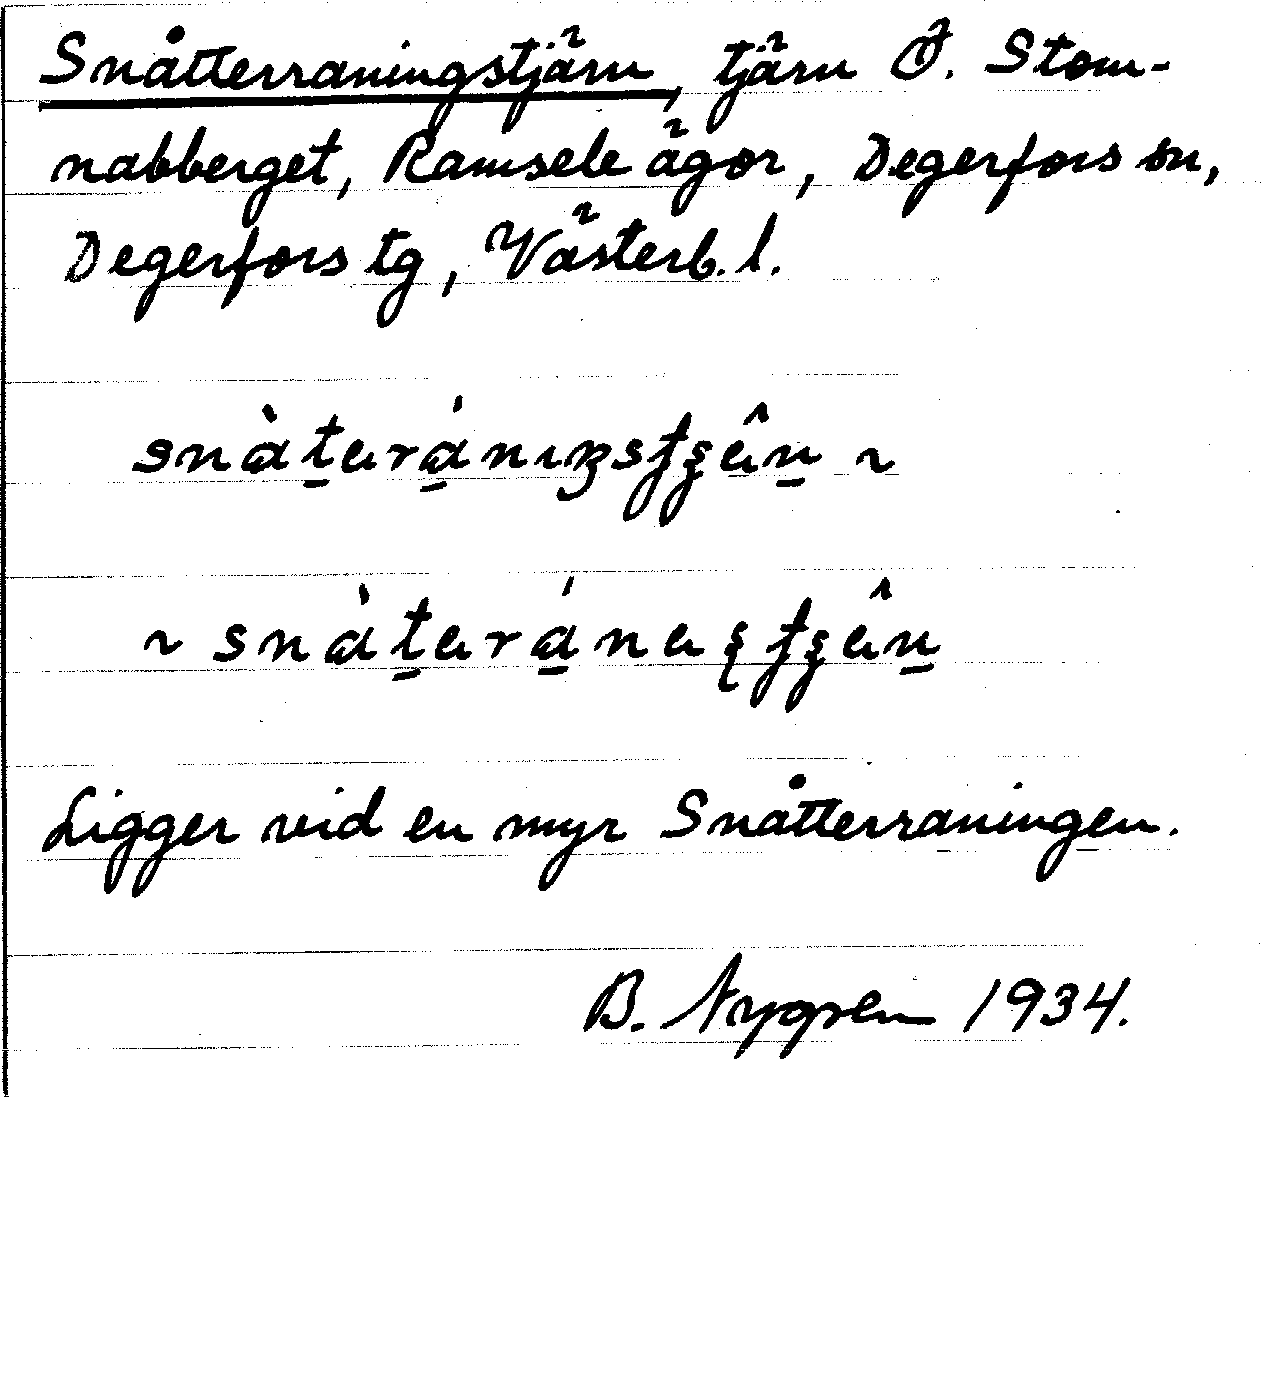 Snåtterraningstjärn, tjärn Ö. Stom-
nabberget, Ramsele ägor, Degerfors sn,
Degerfors tg, Västerb. l.
~
~
Ligger vid en myr Snåtterraningen.
B. Nygren 1934.